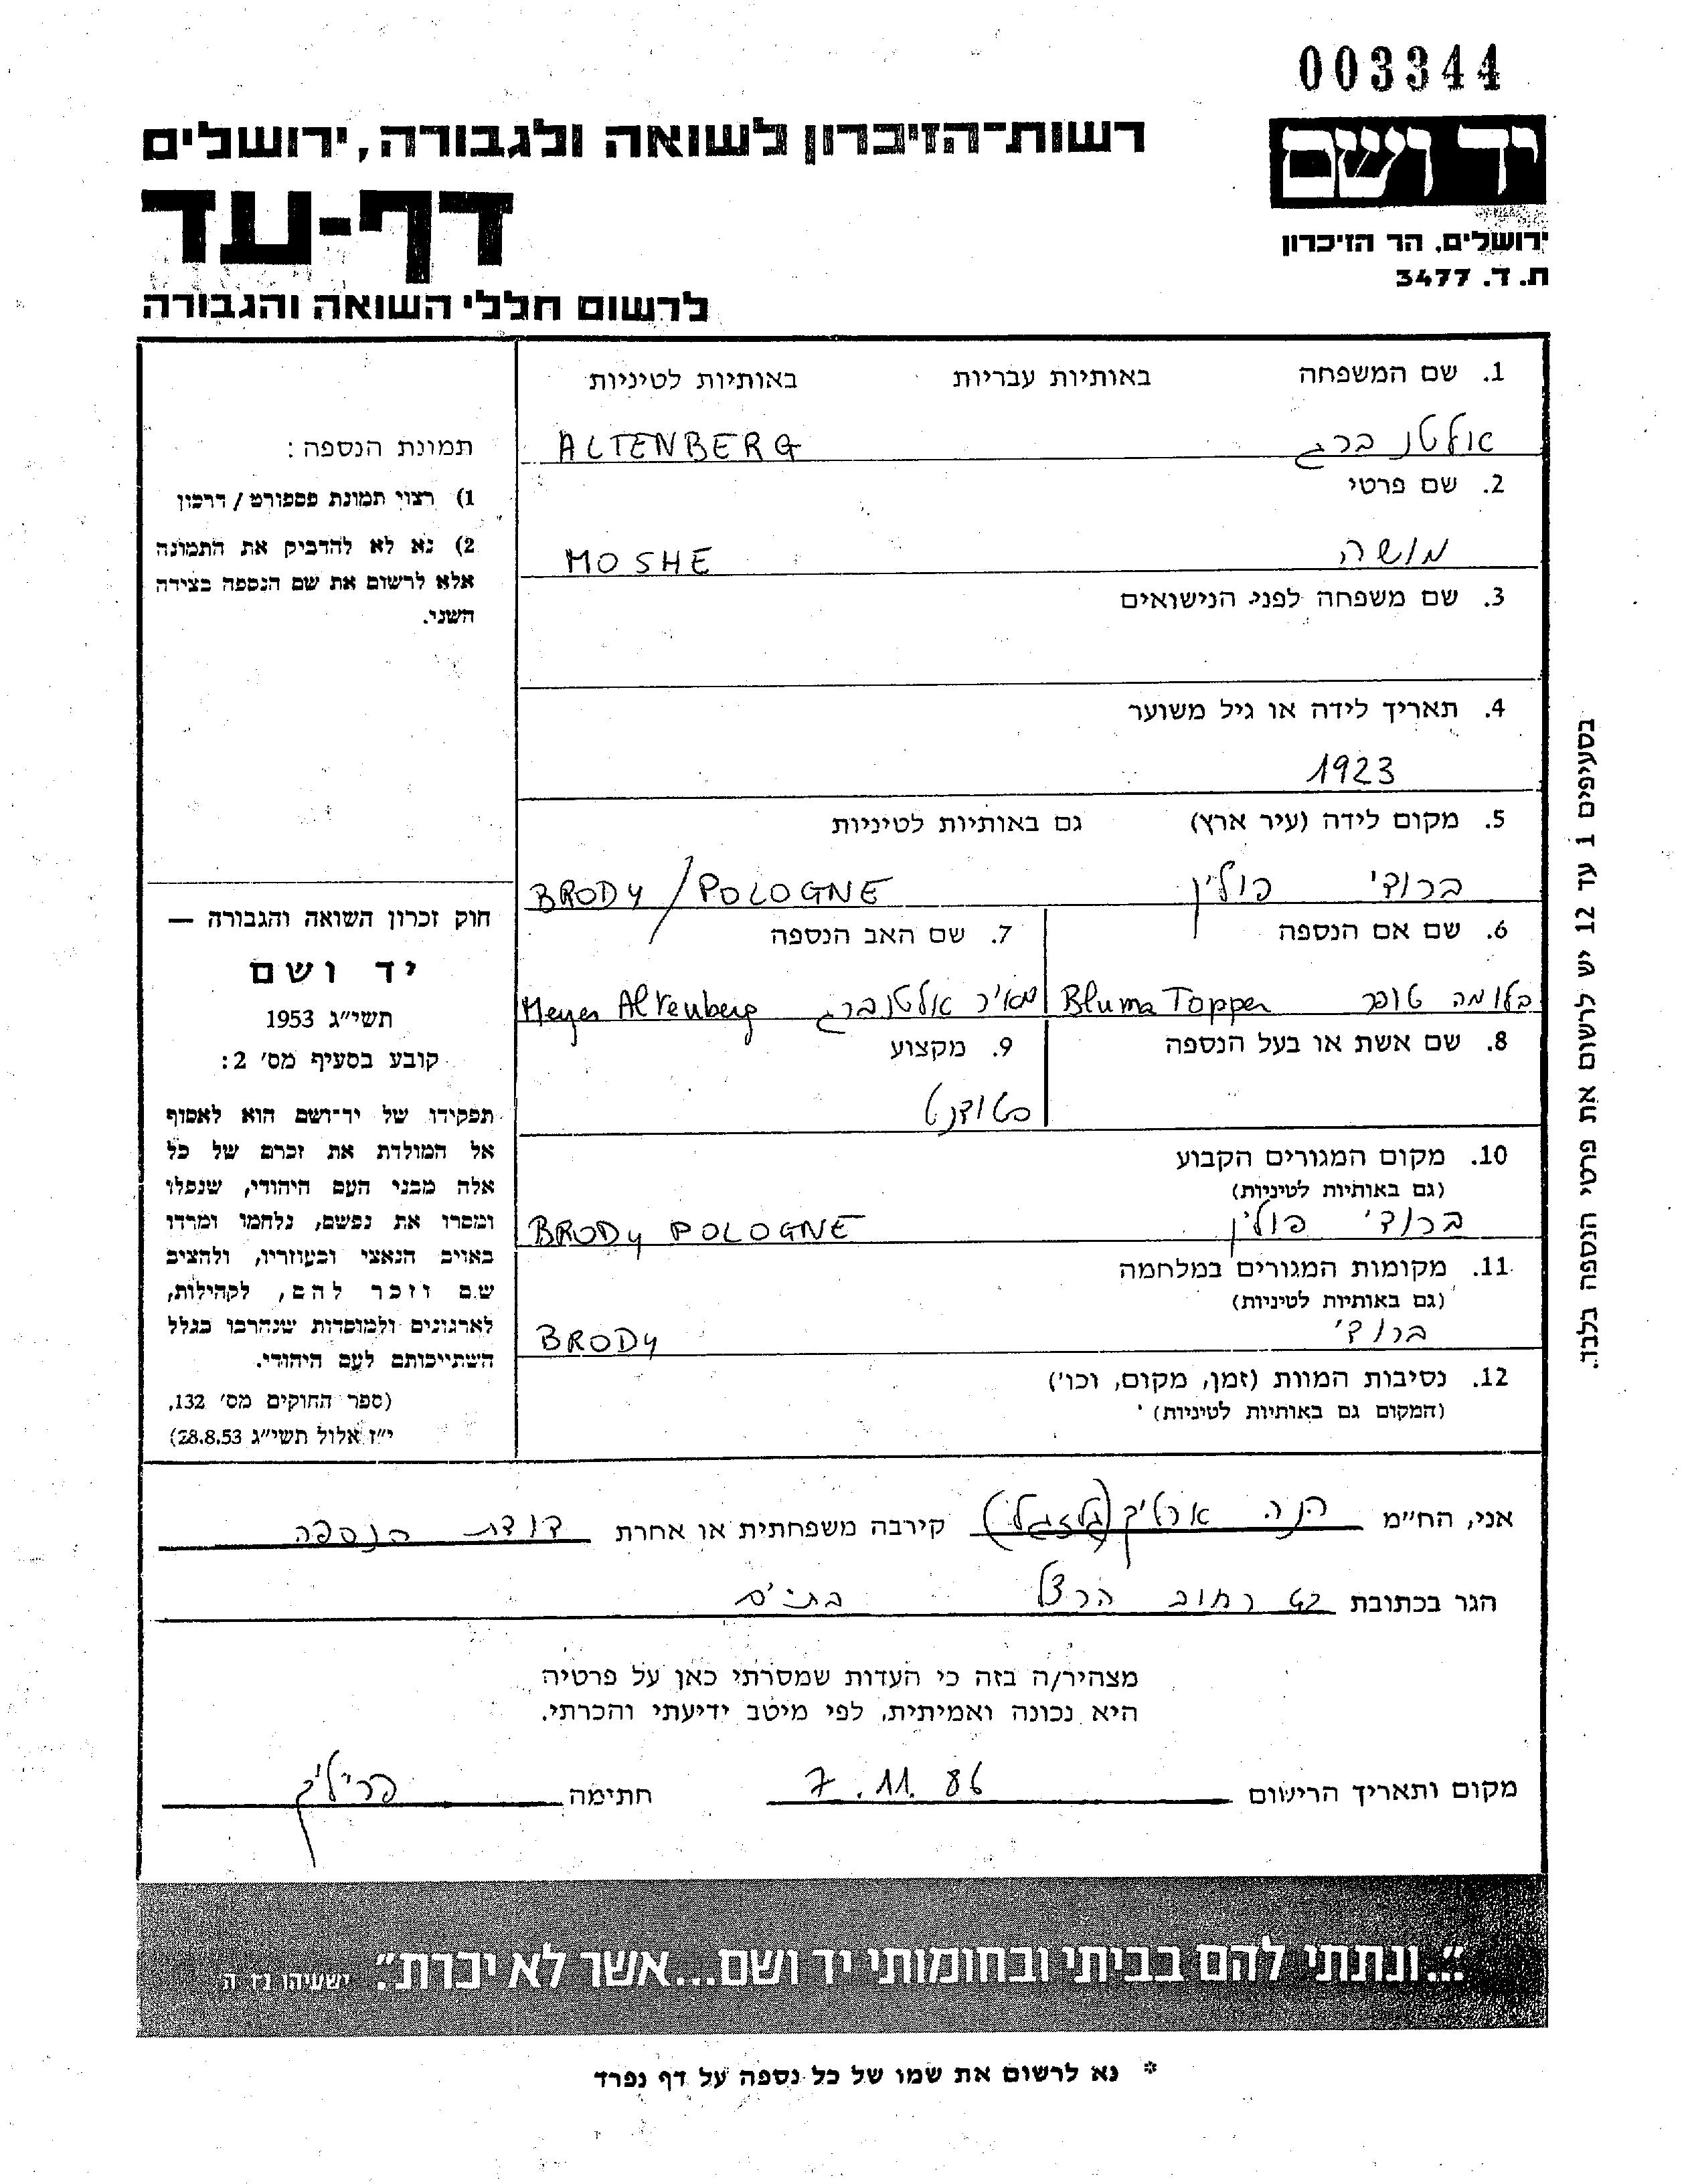 003344
יד ושם
ירושלים, הר הזיכרון
ת. ד. 3477
רשות-הזיכרון לשואה ולגבורה, ירושלים
דף-עד
לרשום חללי השואה והגבורה
1. שם המשפחה באותיות עבריות באותיות לטיניות
אלטנברג ALTENBERG
2. שם פרטי
מושה MOSHE
3. שם משפחה לפני הנישואים
4. תאריך לידה או גיל משוער
1923
5. מקום לידה (עיר ארץ) גם באותיות לטיניות
ברודי פולין BRODY / POLOGNE
6. שם אם הנספה 7. שם האב הנספה
בלומה טופר Bluma Topper מאיר אלטנברג Meyer Altenberg
8. שם אשת או בעל הנספה 9. מקצוע
סטודנט
10. מקום המגורים הקבוע
(גם באותיות לטיניות)
ברודי פולין BRODY POLOGNE
11. מקומות המגורים במלחמה
(גם באותיות לטיניות)
ברודי BRODY
12. נסיבות המוות (זמן, מקום, וכו')
(המקום גם באותיות לטיניות)
תמונת הנספה:
1) רצוי תמונת פספורט / דרכון
2) נא לא להדביק את התמונה
אלא לרשום את שם הנספה בצידה
השני.
חוק זכרון השואה והגבורה —
יד ושם
תשי"ג 1953
קובע בסעיף מס' 2:
תפקידו של יד-ושם הוא לאסוף
אל המולדת את זכרם של כל
אלה מבני העם היהודי, שנפלו
ומסרו את נפשם, נלחמו ומרדו
באויב הנאצי ובעוזריו, ולהציב
שם וזכר להם, לקהילות,
לארגונים ולמוסדות שנחרבו בגלל
השתייכותם לעם היהודי.
(ספר החוקים מס' 132,
י"ז אלול תשי"ג 28.8.53)
בסעיפים 1 עד 12 יש לרשום את פרטי הנספה בלבד.
אני, הח"מ חנה קירבה משפחתית או אחרת דודת הנספה
הגר בכתובת רחוב הרצל בת-ים
מצהיר/ה בזה כי העדות שמסרתי כאן על פרטיה
היא נכונה ואמיתית, לפי מיטב ידיעתי והכרתי.
מקום ותאריך הרישום 7.11.86 חתימה
"...ונתתי להם בביתי ובחומותי יד ושם...אשר לא יכרת". ישעיהו נו ה
* נא לרשום את שמו של כל נספה על דף נפרד